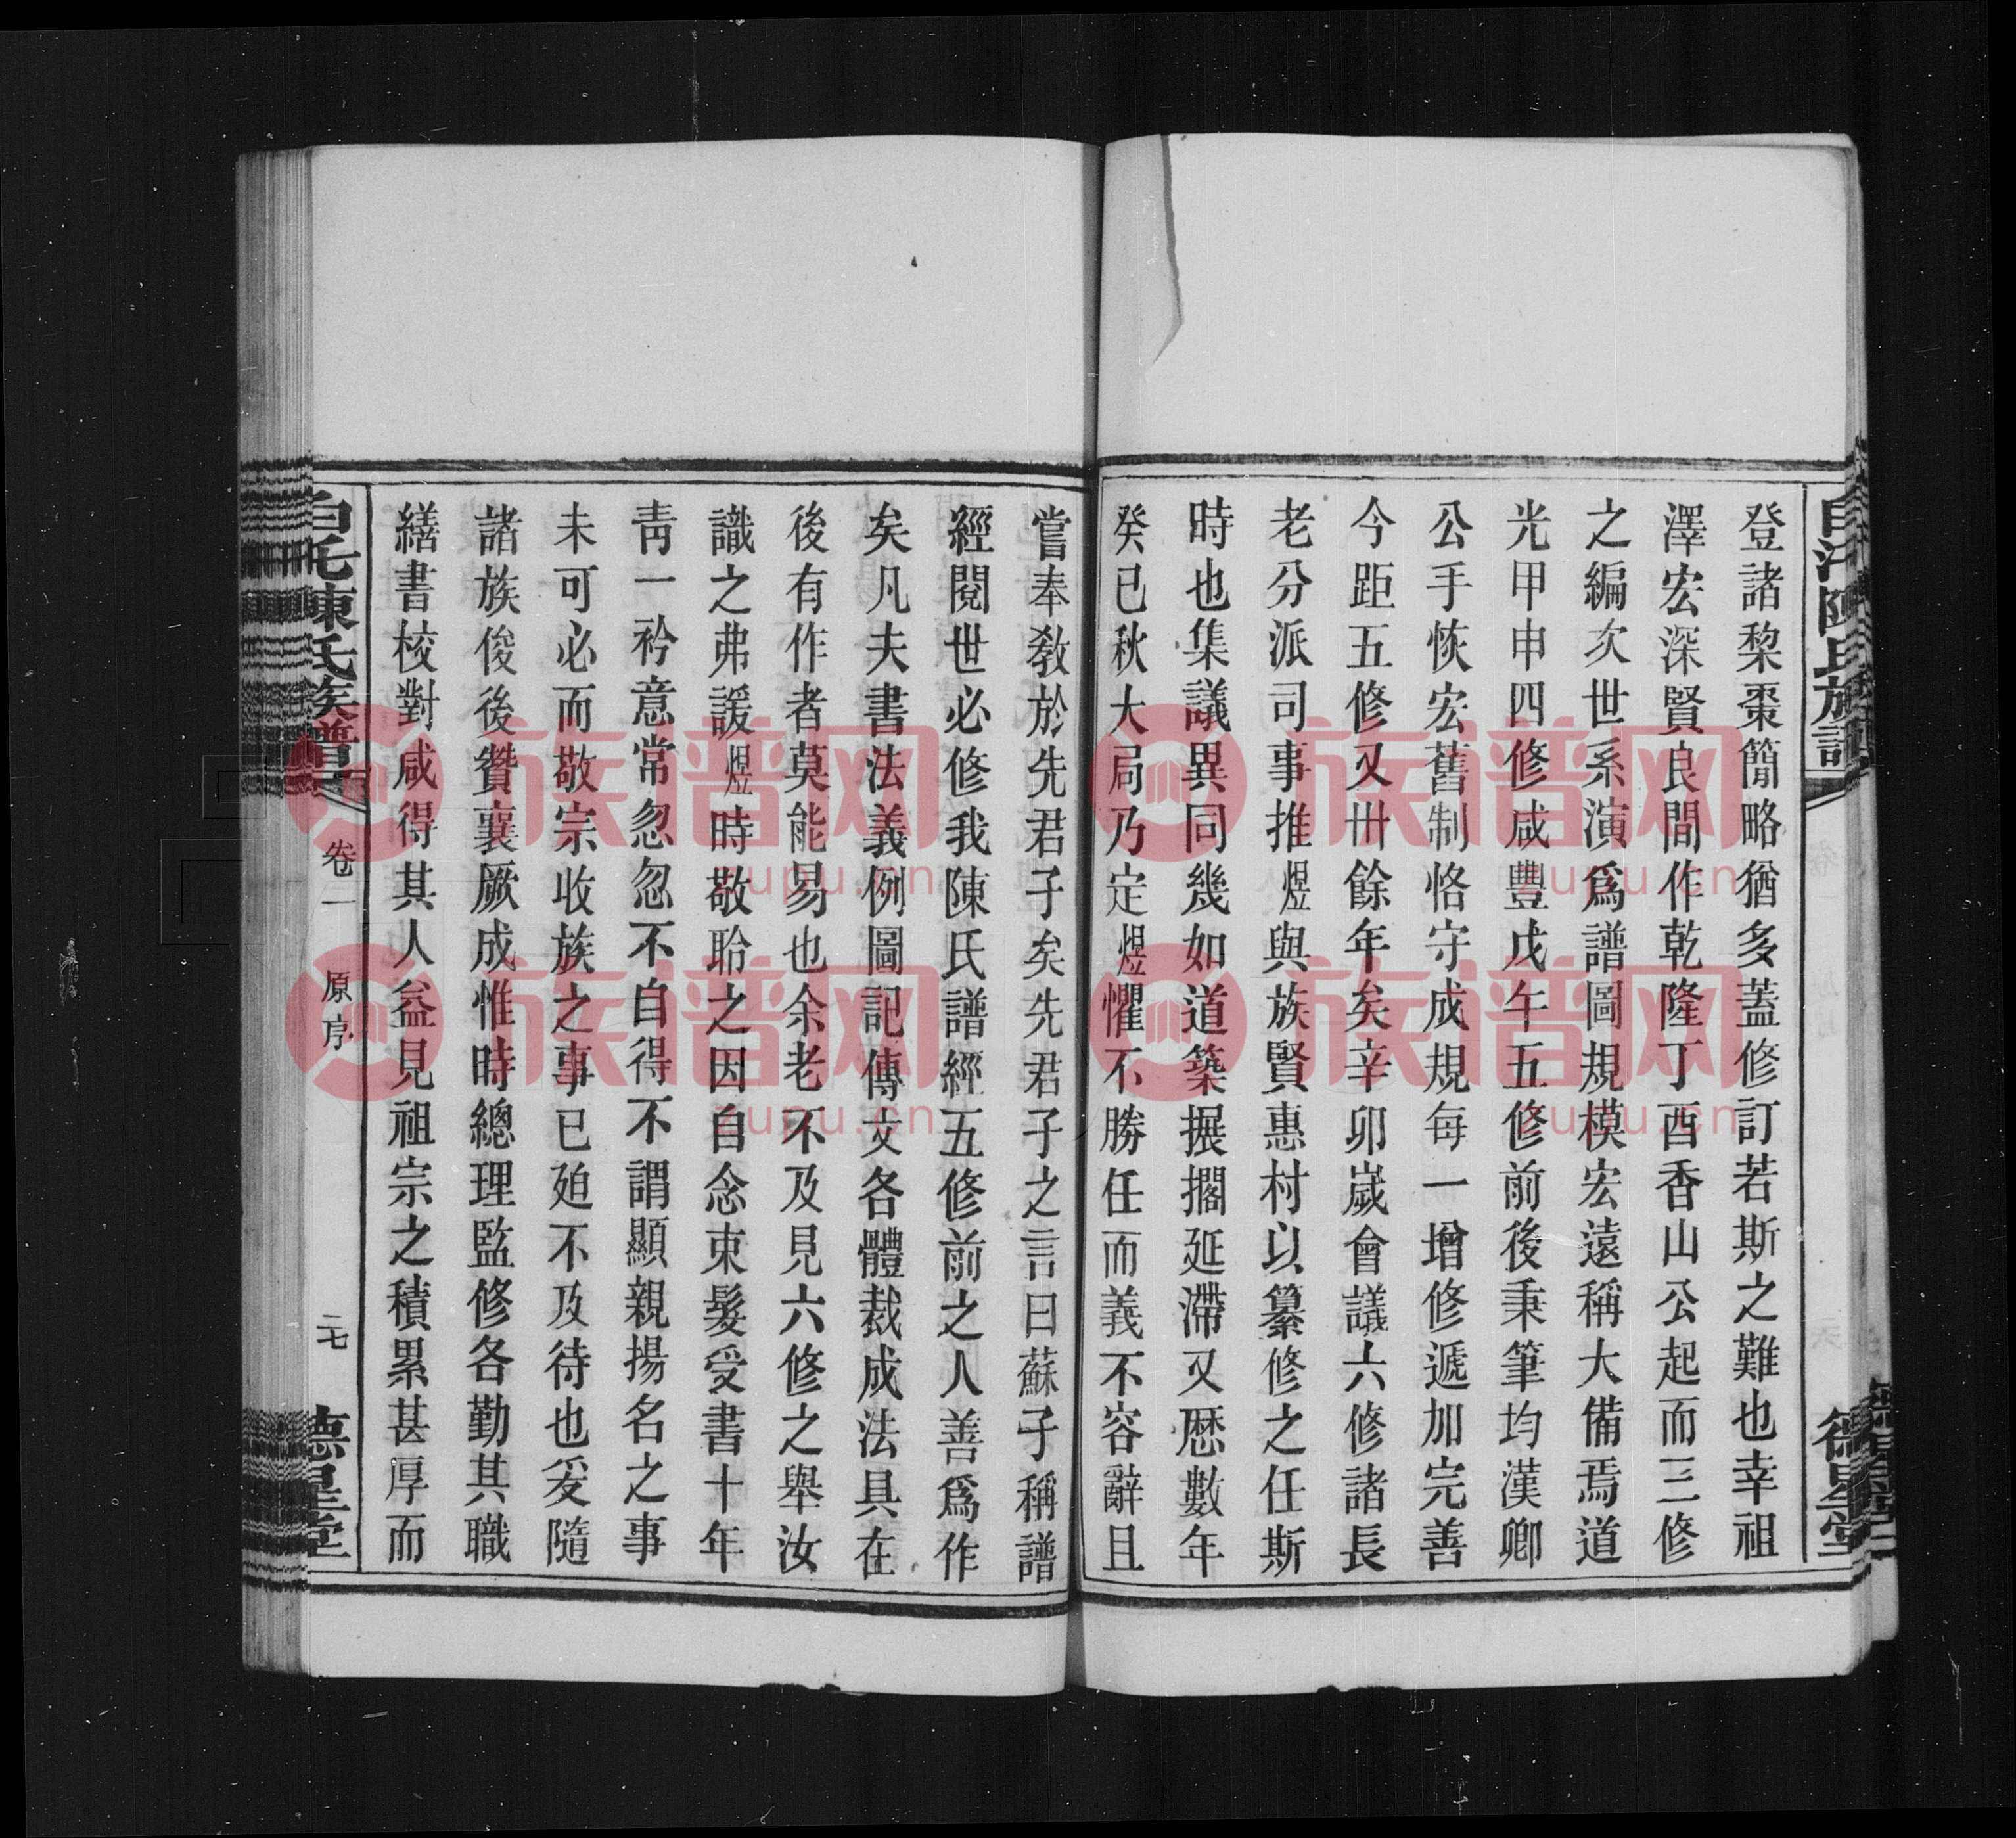 登諸黎棗簡略猶多蓋修訂若斯之難也幸祖
澤宏深賢良間作乾隆丁酉香山公起而三修
之編次世系演爲譜圖規模宏遠稱大備焉道
光甲申四修咸豐戊午五修前後秉筆均漢卿
公手恢宏舊制恪守成規每一增修遞加完善
今距五修又卅餘年矣辛卯嵗會議六修諸長
老分派司事推煜與族賢惠村以纂修之任斯
時也集議異同幾如道築搌擱延滯又歷數年
癸巳秋大局乃定煜懼不勝任而義不容辭且
嘗奉敎於先君子矣先君子之言曰蘇子稱譜
經閱世必修我陳氏譜經五修前之人善爲作
矣凡夫書法義例圖記傳文各體裁成法具在
後有作者莫能易也余老不及見六修之舉汝
識之弗諼煜時敬聆之因自念束髮受書十年
靑一衿意常忽忽不自得不謂顯親揚名之事
未可必而敬宗收族之事已廹不及待也爰隨
諸族俊後贊襄厥成惟時總理監修各勤其職
繕書校對咸得其人益見祖宗之積累甚厚而
陳氏族譜
卷一
原序
二七
德星堂
族谱网
zupu.cn
族谱网
zupu.cn
族谱网
zupu.cn
族谱网
zupu.cn